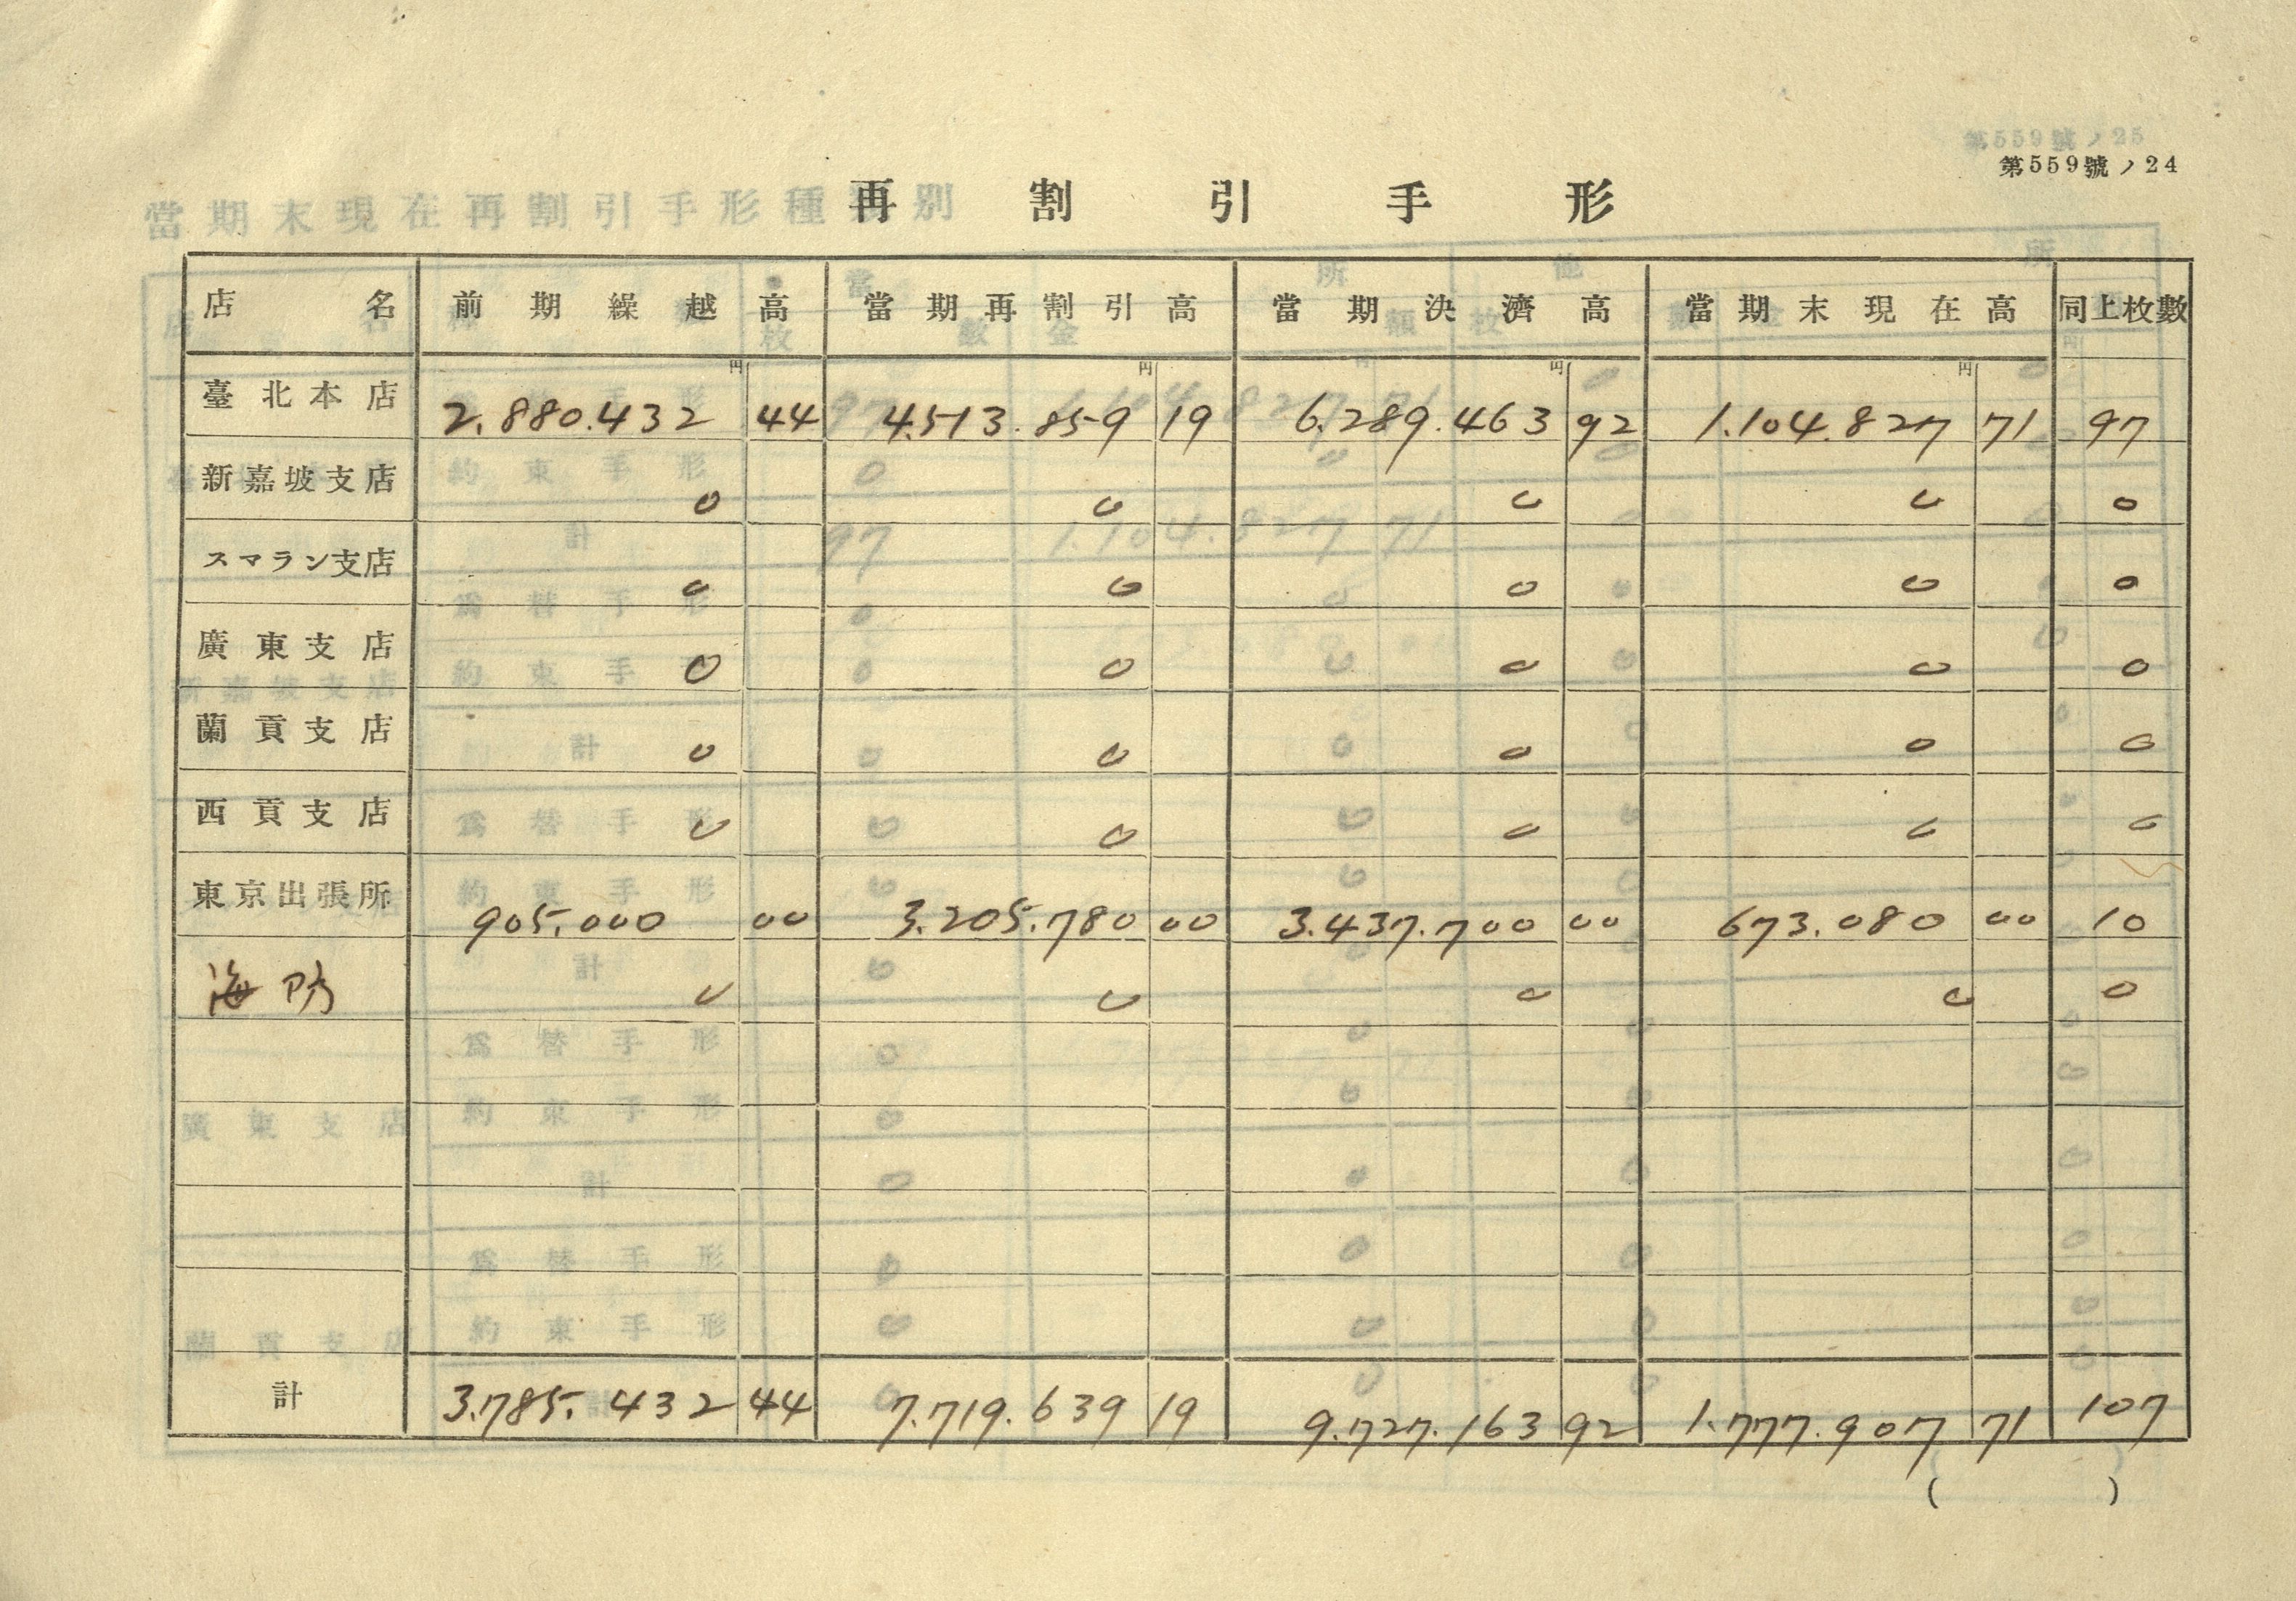 第559號ノ24
再割引手形
店名 前期繰越高 當期再割引高 當期決濟高 當期末現在高 同上枚數
円 円 円 円
臺北本店 2.880.432 44 4.513.859 19 6.289.463 92 1.104.827 71 97
新嘉坡支店 0 0 0 0 0
スマラン支店 0 0 0 0 0
廣東支店 0 0 0 0 0
蘭貢支店 0 0 0 0 0
西貢支店 0 0 0 0 0
東京出張所 905.000 00 3.205.780 00 3.437.700 00 673.080 00 10
海防 0 0 0 0 0
計 3.785.432 44 7.719.639 19 9.727.163 92 1.777.907 71 107
( )